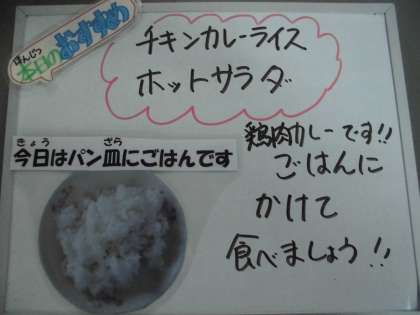 ほんじつ
本日のおすすめ
チキンカレーライス
ホットサラダ
きょう ざら
今日はパン皿にごはんです
鶏肉カレーです!!
ごはんに
かけて
食べましょう!!